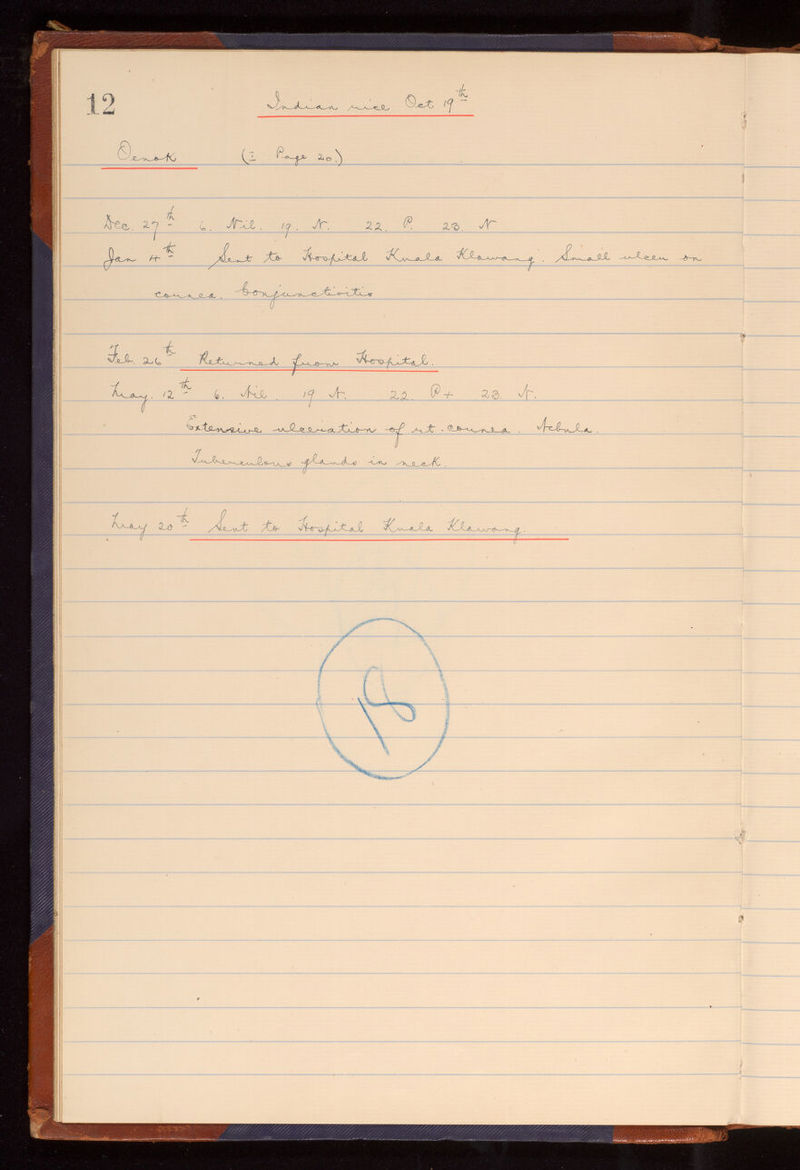 12
Indian rice Oct 19th
Oenok (I Page 20.)
Dec. 27th 6. Nil. 19. N. 22. P. 23. N
Jan 4th Sent to Hospital Kuala Klawang. Small ulcer on
cornea. Conjunctivitis
Feb. 26th Returned from Hospital.
May. 12th 6. Nil. 19 N. 22. P+ 23. N.
Extensive ulceration of rt. cornea. Nebula.
Tuberculous glands in neck.
May 20th Sent to Hospital Kuala Klawang.
18